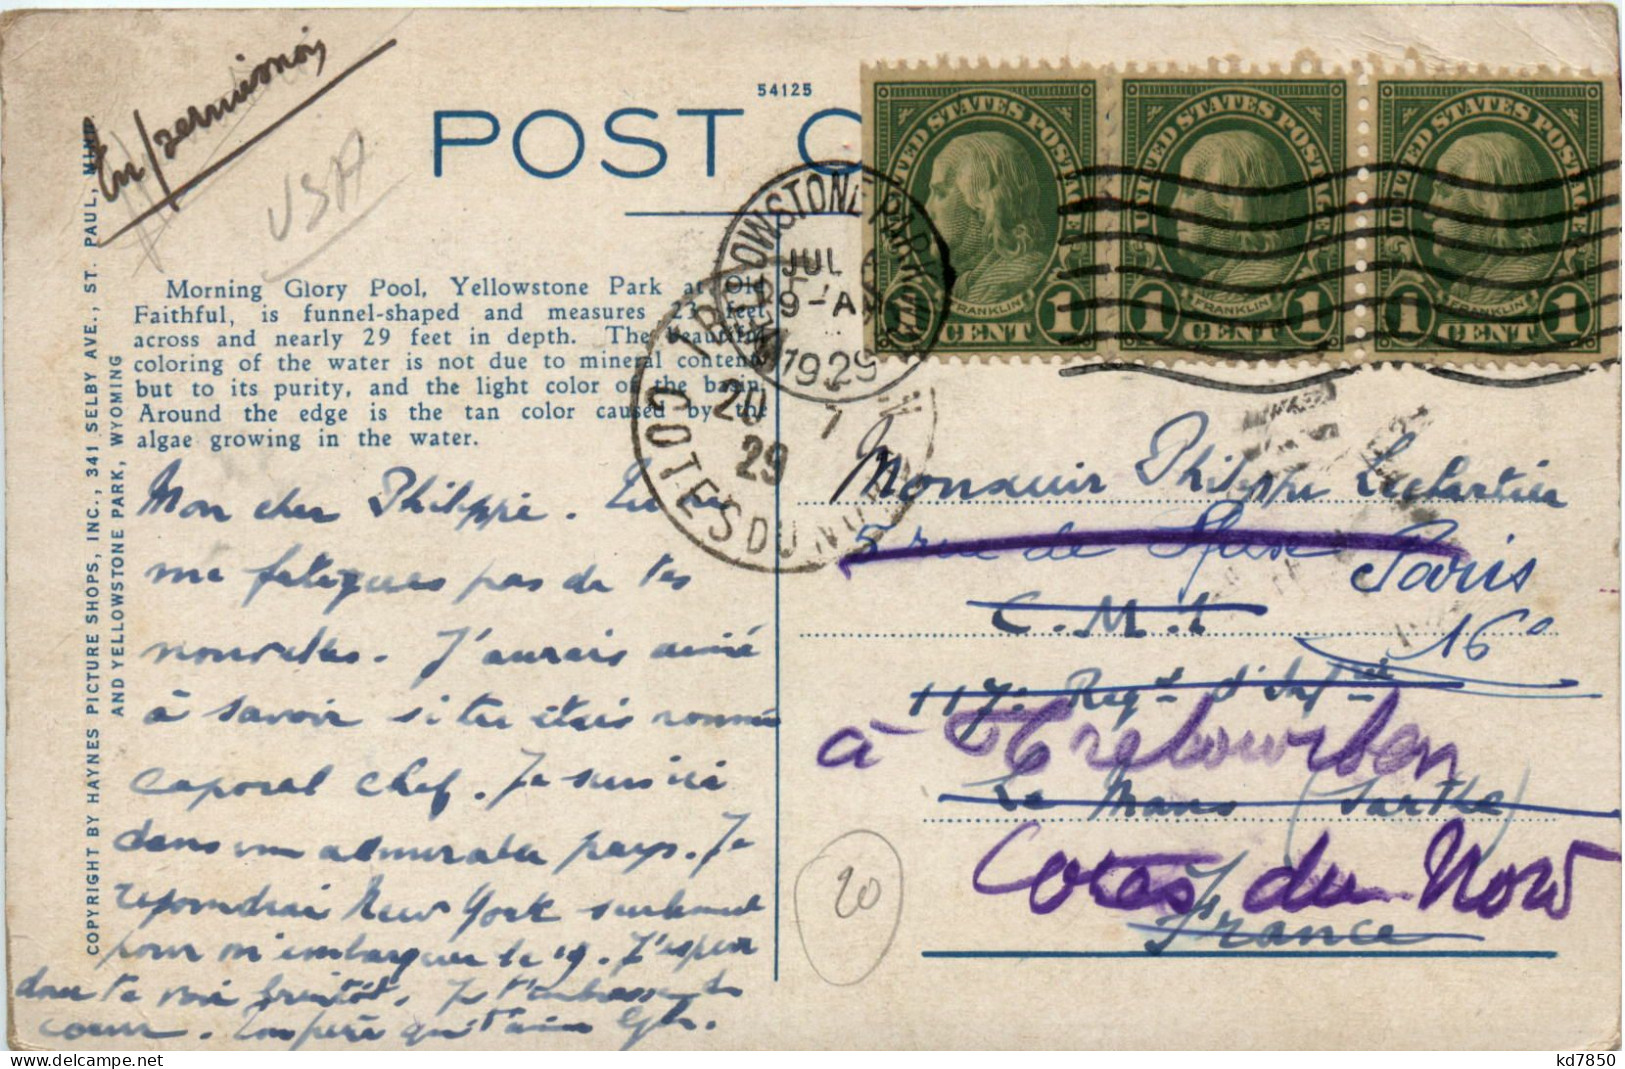 En permission
USA
54125
POST C
Morning Glory Pool, Yellowstone Park at Old
Faithful, is funnel-shaped and measures 23 feet
across and nearly 29 feet in depth. The beautiful
coloring of the water is not due to mineral content
but to its purity, and the light color of the basin.
Around the edge is the tan color caused by the
algae growing in the water.
COPYRIGHT BY HAYNES PICTURE SHOPS, INC., 341 SELBY AVE., ST. PAUL, MINN
AND YELLOWSTONE PARK, WYOMING
UNITED STATES POSTAGE
FRANKLIN
1 CENT 1
UNITED STATES POSTAGE
FRANKLIN
1 CENT 1
UNITED STATES POSTAGE
FRANKLIN
1 CENT 1
YELLOWSTONE PARK
JUL
9-AM
1929
WYO
20 7
29
COTES DU NORD
Mon cher Philippe. Tu ne
me fatigues pas de tes
nouvelles. J'aurais aimé
à savoir si tu étais nommé
caporal chef. Je suis ici
dans un admirable pays. Je
rejoindrai New York seulement
pour m'embarquer le 19. J'espère
donc te voir bientôt. Je t'embrasse de
coeur. Ton père qui t'aime
Monsieur Philippe Leclartier
5 rue de
Paris
16e
C.M.1
117e Regt d'Infie
à Trebeurden
Le Mans (Sarthe)
Cotes du Nord
France
20
kd7850